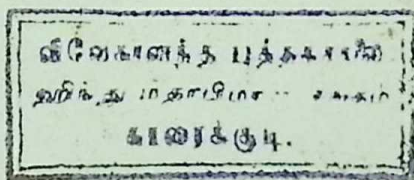 விவேகானந்த புத்தகசாலை
ஹிந்து மதாபிமான சங்கம்
காரைக்குடி.